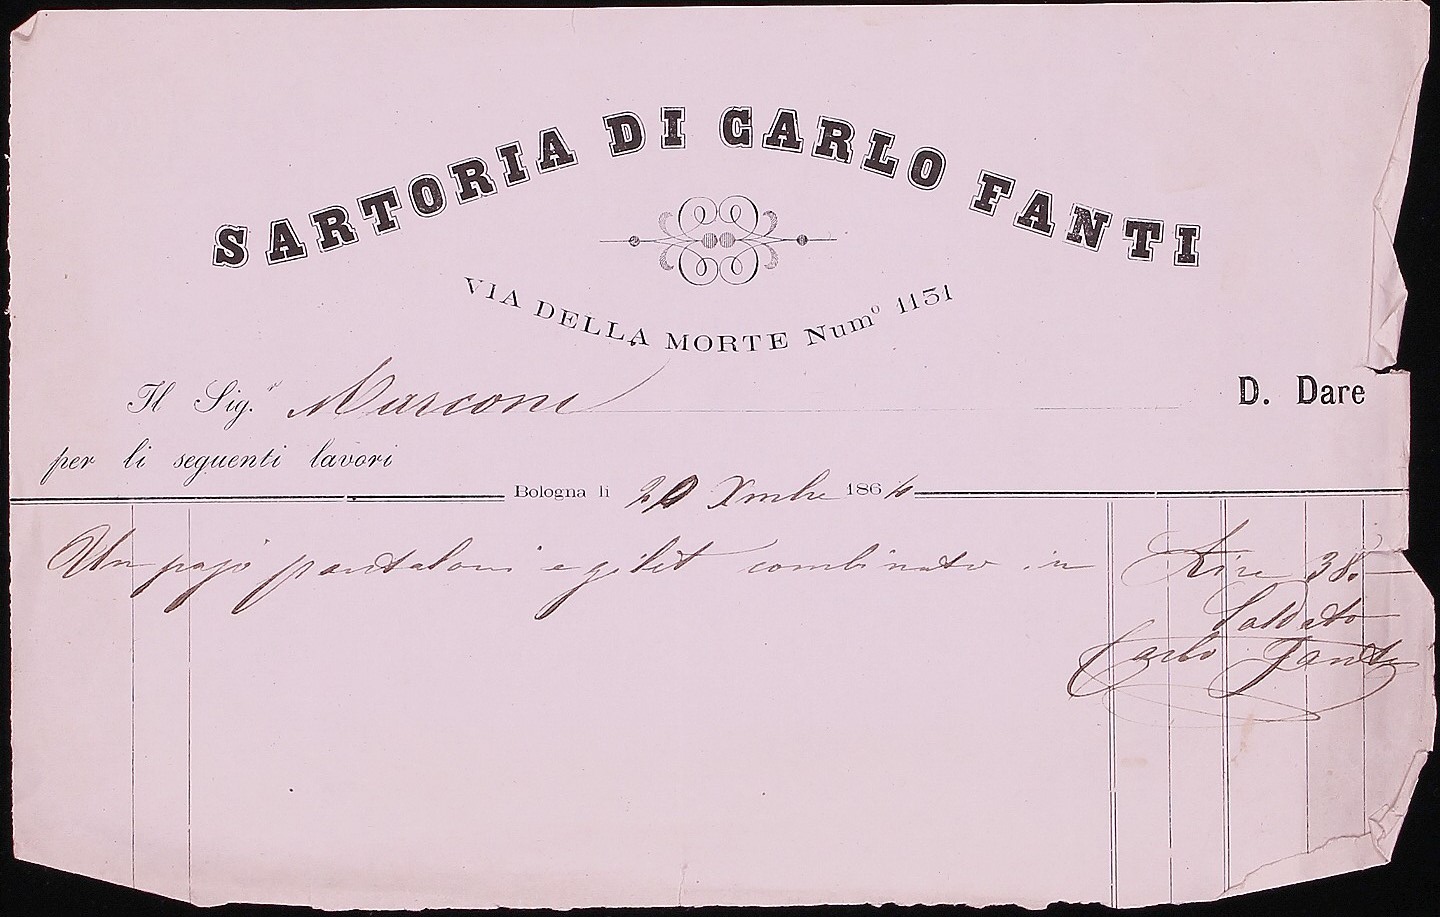 SARTORIA DI CARLO FANTI
VIA DELLA MORTE Num° 1151
Il Sig.r Marconi D. Dare
per li seguenti lavori
Bologna li 20 Xmbre 1864
Un pajo pantaloni e gilet combinato in Lire 38.
Saldato
Carlo Fanti